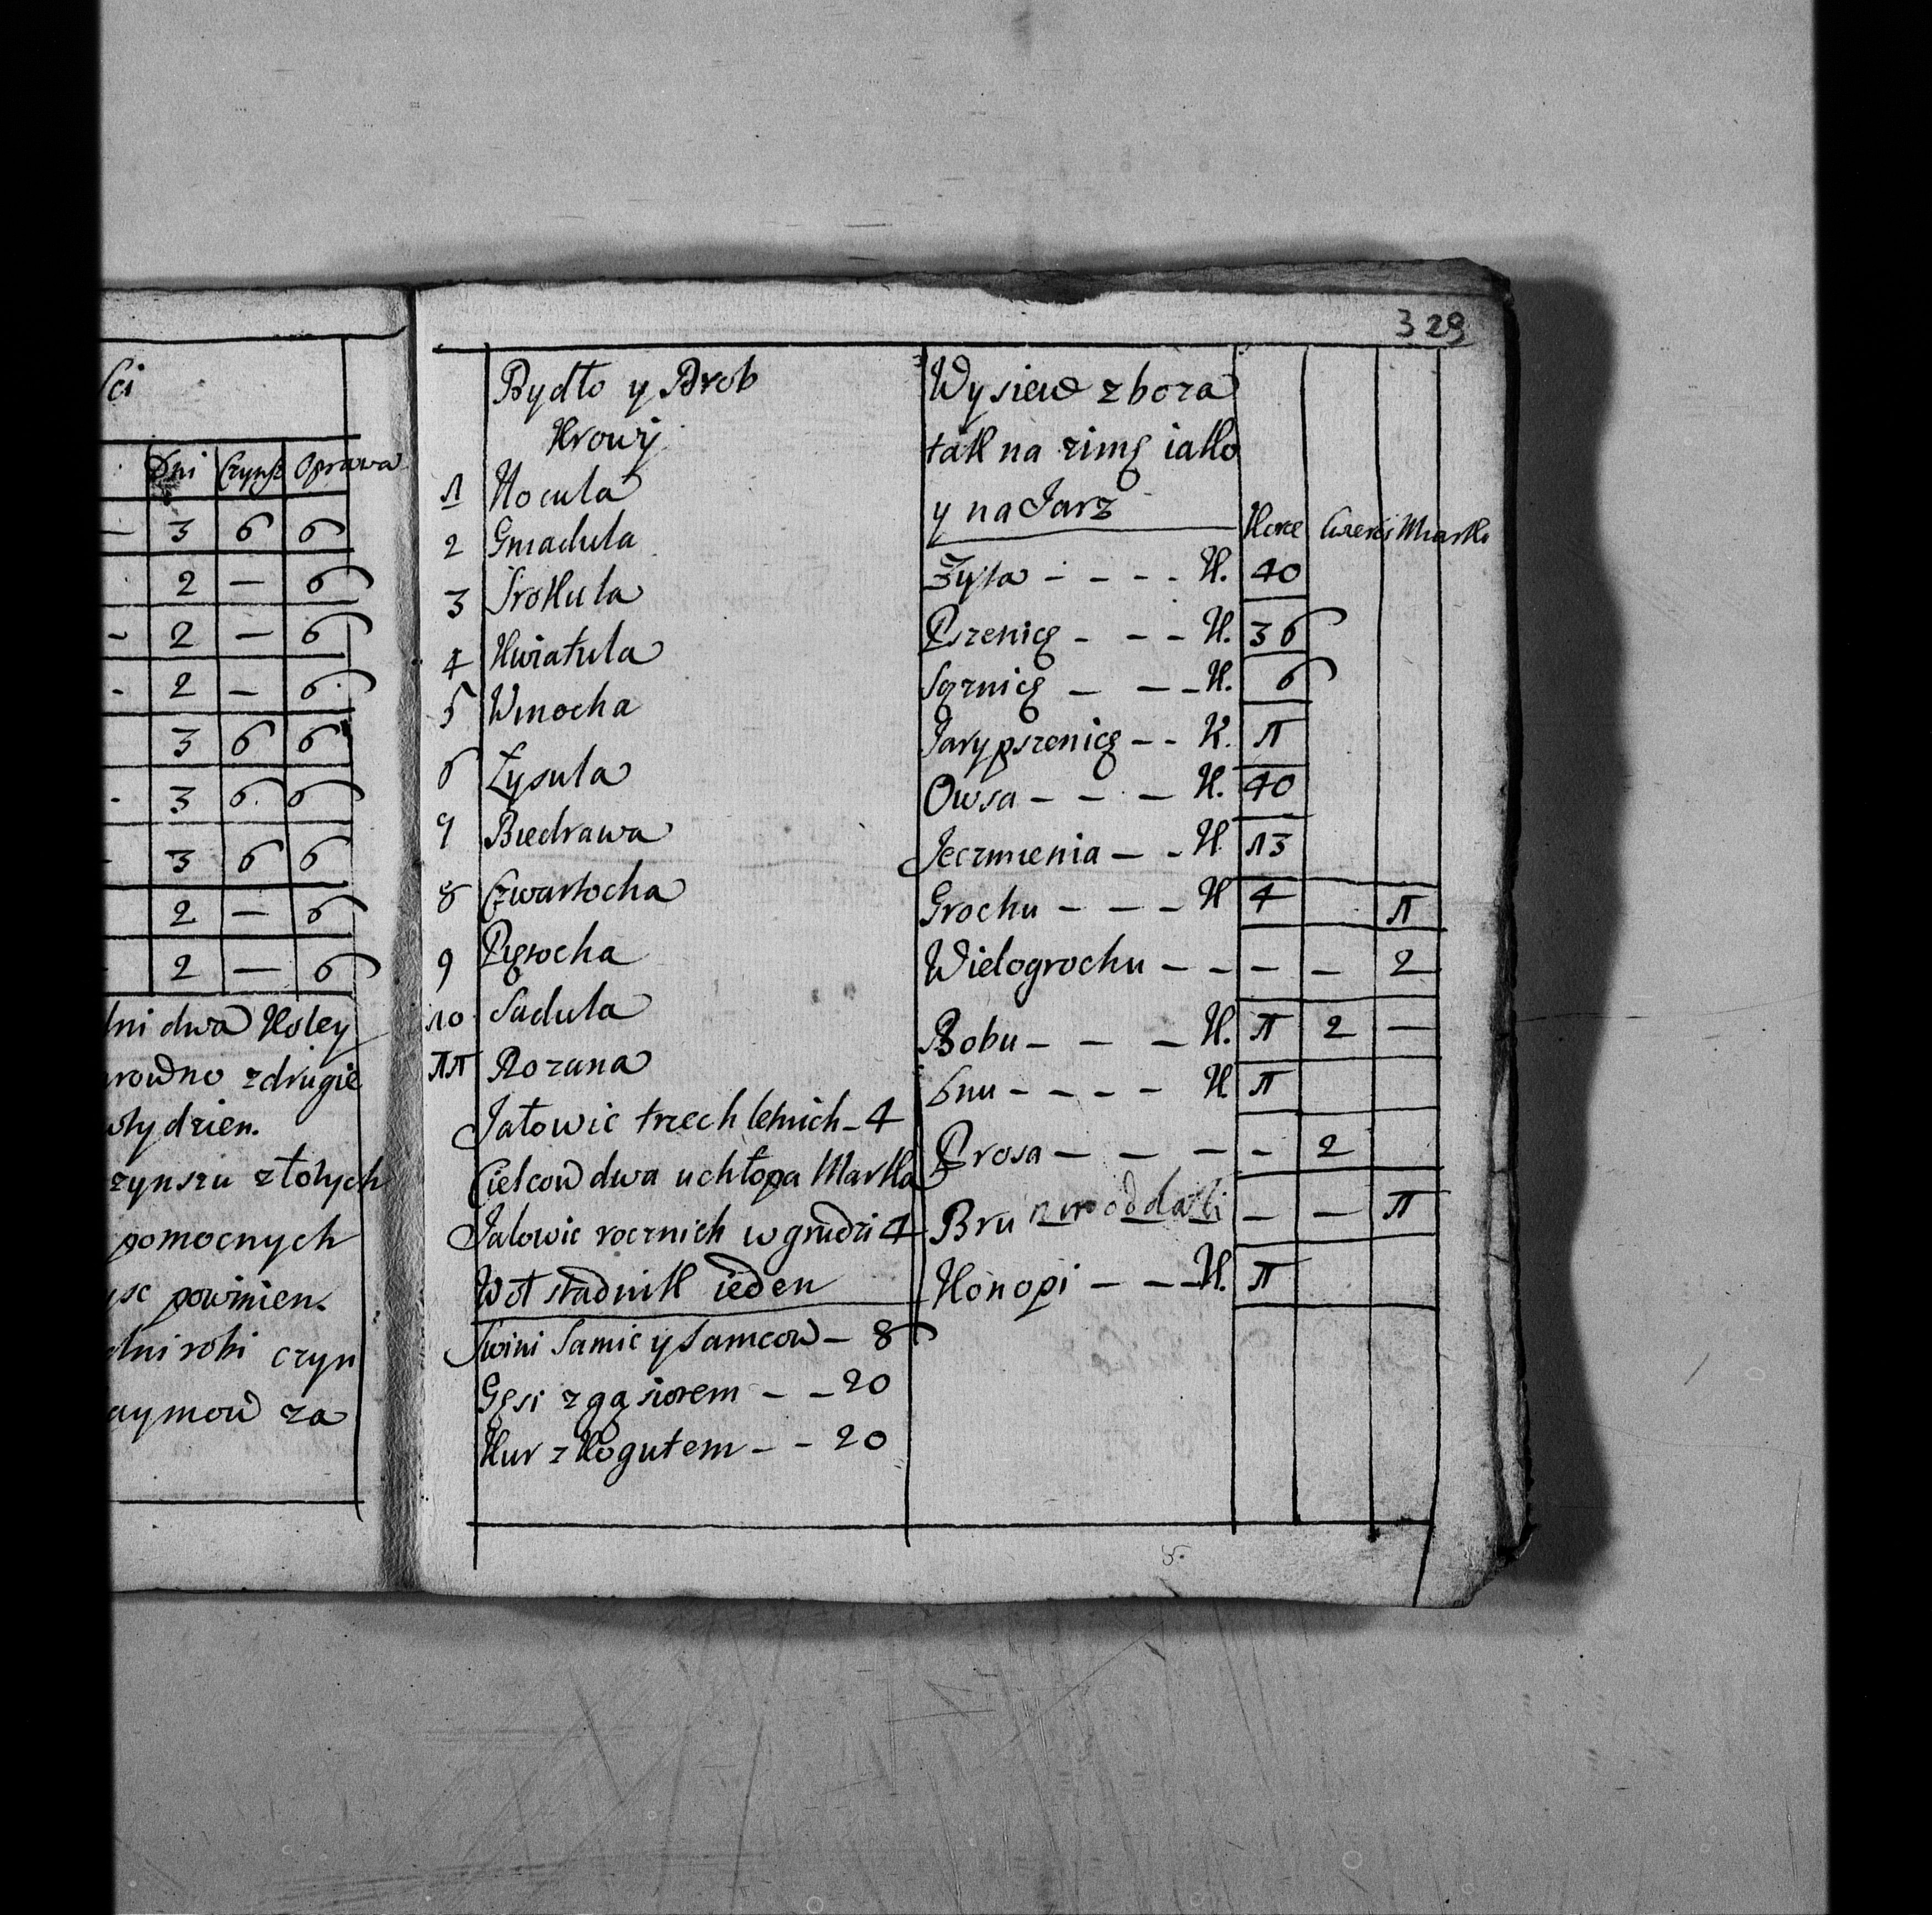 ści
Dni Czynsz Oprawa
— 3 6 6
2 — 6
- 2 — 6
- 2 — 6
3 6 6
- 3 6 6
- 3 6 6
2 — 6
- 2 — 6
dni dwa Koley
rowno z drugie
tydzien.
czynszu złotych
pomocnych
powinien.
dni robi czyn
za
329
Bydło y Drob
Krowy
1 Kocula
2 Gniadula
3 Srokula
4 Kwiatula
5 Winocha
6 Łysula
7 Biedrawa
8 Czwartocha
9 Piętocha
10 Sadula
11 Rozana
Jałowic trzech letnich - 4
Cielcow dwa u chłopa Marka
Jalowic rocznich w grudzi 4
Woł stadnik ieden
Swini Samic y Samcow — 8
Gęsi z gąsiorem — — 20
Kur z Kogutem — — 20
Wysiew zboza
tak na zimę iako
y na Jarz
Korce Cwierci Miarki
Zyta - - - - K. 40
Pszenicę - - - K. 36
Sąznicę - - - K. 6
Jary pszenicę - - K. 1
Owsa - - - K. 40
Jeczmienia - - K 13
Grochu - - - K 4 1
Wielogrochu - - - - 2
Bobu - - - K. 1 2 —
Lnu - - - - K 1
Prosa - - - - 2
Bru — — 1
Konopi - - K. 1